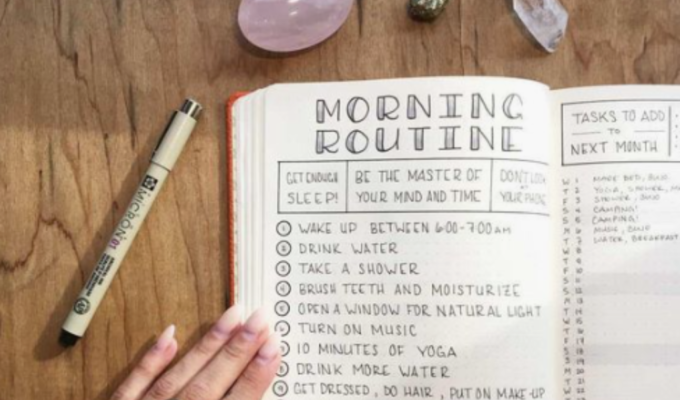 MORNING
ROUTINE
GET ENOUGH
SLEEP!
BE THE MASTER OF
YOUR MIND AND TIME
DON'T LOOK
YOUR PHONE
1 WAKE UP BETWEEN 6:00-7:00AM
2 DRINK WATER
3 TAKE A SHOWER
4 BRUSH TEETH AND MOISTURIZE
5 OPEN A WINDOW FOR NATURAL LIGHT
6 TURN ON MUSIC
9 10 MINUTES OF YOGA
8 DRINK MORE WATER
9 GET DRESSED, DO HAIR, PUT ON MAKE-UP
TASKS TO ADD
TO
NEXT MONTH
W 1 MAKE BED,
T 2 YOGA, SHOWER,
F 3 SHOWER,
S 4 CAMPING!
S 5 CAMPING!
M 6 MUSIC,
T 7 WATER, BREAKFAST
W 8
MICRON